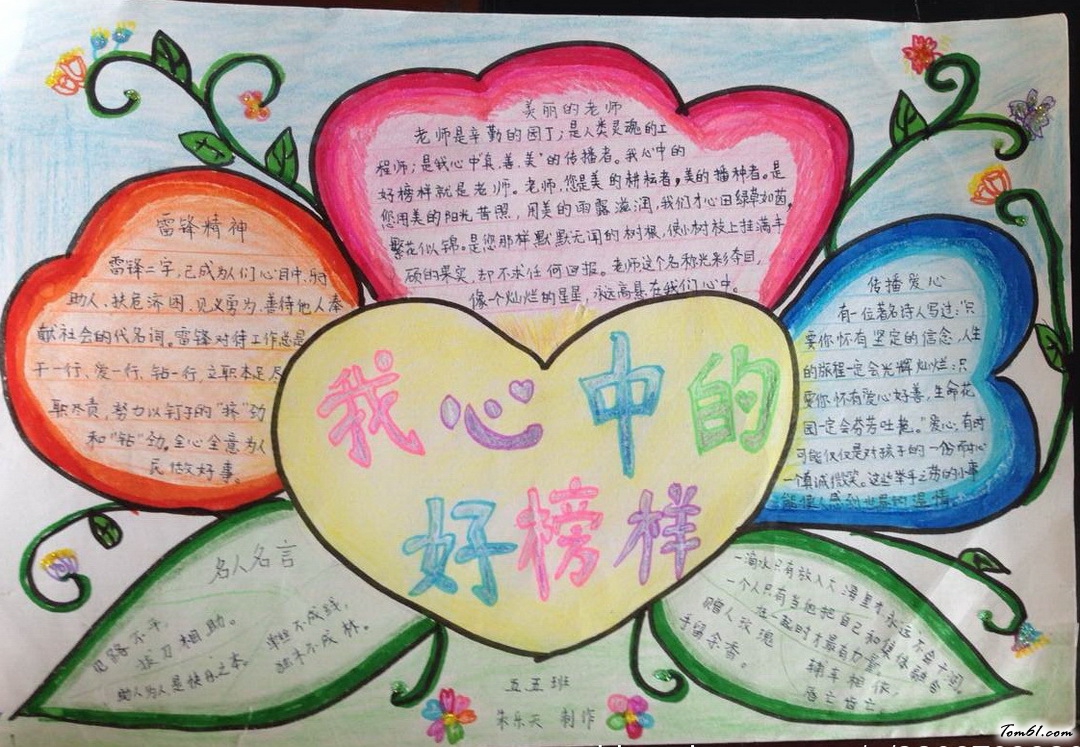 我心中的
好榜样
美丽的老师
老师是辛勤的园丁；是人类灵魂的工
程师；是我心中"真、善、美"的传播者。我心中的
好榜样就是老师。老师，您是美的耕耘者，美的播种者。是
您用美的阳光普照，用美的雨露滋润，我们才心田绿草如茵，
繁花似锦。是您那样默默无闻的树根，使小树枝上挂满丰
硕的果实，却不求任何回报。老师这个名称光彩夺目，
像个灿烂的星星，永远高悬在我们心中。
雷锋精神
雷锋二字，已成为人们心目中，乐于
助人、扶危济困、见义勇为、善待他人、奉
献社会的代名词。雷锋对待工作总是
干一行、爱一行、钻一行，立职本足尽
职尽责，努力以钉子的"挤"劲
和"钻"劲，全心全意为人
民做好事。
传播爱心
有一位著名诗人写过："只
要你怀有坚定的信念，人生
的旅程一定会光辉灿烂；只
要你怀有爱心好善，生命花
园一定会芬芳吐艳。"爱心，有时
可能仅仅是对孩子的一份耐心
一个真诚微笑。这些举手之劳的小事
能使人感到世界的温情
名人名言
见路不平，
拔刀相助。
助人为人是快乐之本。
单丝不成线，
独木不成林。
一滴水只有放入大海里才永远不会干涸。
一个人只有当他把自己和集体融合
在一起时才最有力量。
赠人玫瑰
手留余香。
辅车相依，
唇亡齿亡。
五五班
朱乐天 制作
Tom61.com